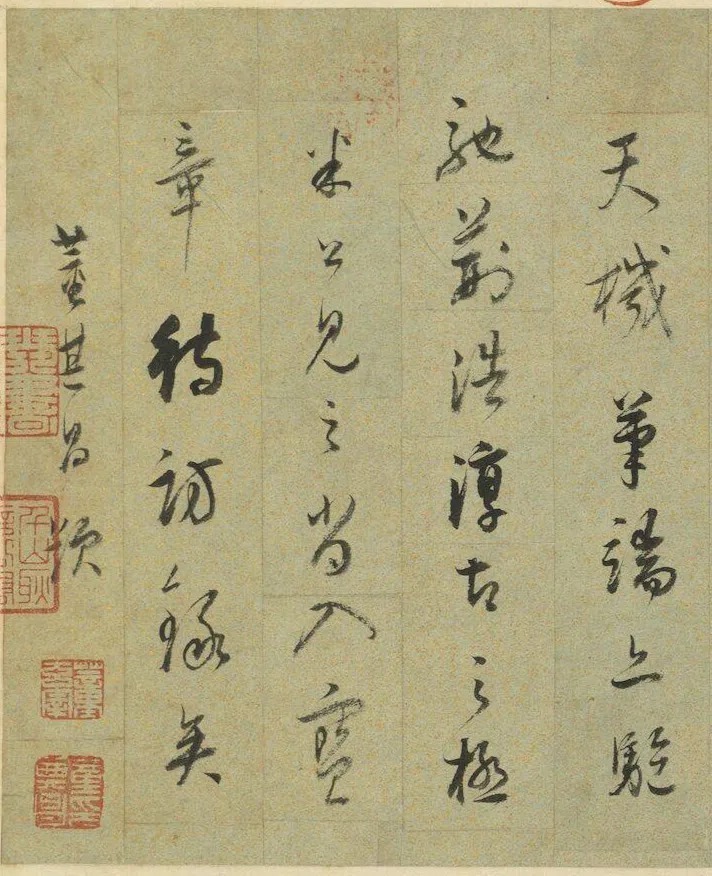 天機筆端上驅
馳荊浩淳古之極
米公見之當入寶
章待訪錄矣
董其昌題